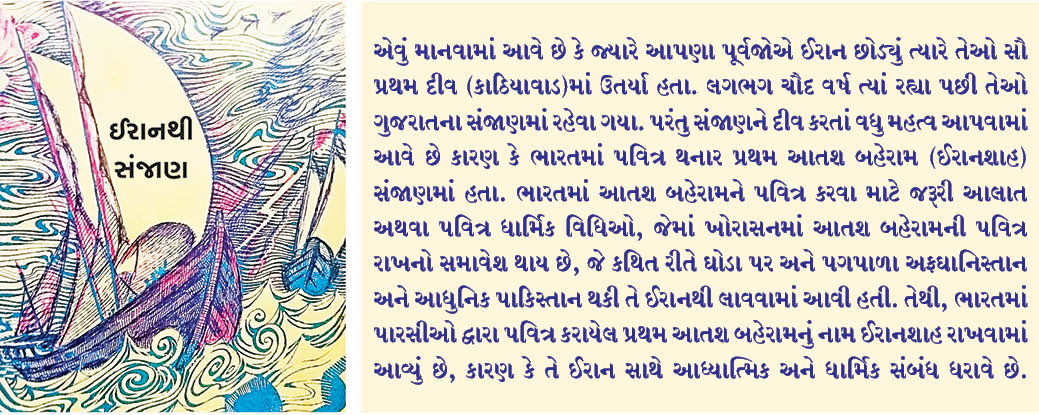 ઈરાનથી
સંજાણ
એવું માનવામાં આવે છે કે જ્યારે આપણા પૂર્વજોએ ઈરાન છોડ્યું ત્યારે તેઓ સૌ
પ્રથમ દીવ (કાઠિયાવાડ)માં ઉતર્યા હતા. લગભગ ચૌદ વર્ષ ત્યાં રહ્યા પછી તેઓ
ગુજરાતના સંજાણમાં રહેવા ગયા. પરંતુ સંજાણને દીવ કરતાં વધુ મહત્વ આપવામાં
આવે છે કારણ કે ભારતમાં પવિત્ર થનાર પ્રથમ આતશ બહેરામ (ઈરાનશાહ)
સંજાણમાં હતા. ભારતમાં આતશ બહેરામને પવિત્ર કરવા માટે જરૂરી આલાત
અથવા પવિત્ર ધાર્મિક વિધિઓ, જેમાં ખોરાસનમાં આતશ બહેરામની પવિત્ર
રાખનો સમાવેશ થાય છે, જે કથિત રીતે ઘોડા પર અને પગપાળા અફઘાનિસ્તાન
અને આધુનિક પાકિસ્તાન થકી તે ઈરાનથી લાવવામાં આવી હતી. તેથી, ભારતમાં
પારસીઓ દ્વારા પવિત્ર કરાયેલ પ્રથમ આતશ બહેરામનું નામ ઈરાનશાહ રાખવામાં
આવ્યું છે, કારણ કે તે ઈરાન સાથે આધ્યાત્મિક અને ધાર્મિક સંબંધ ધરાવે છે.